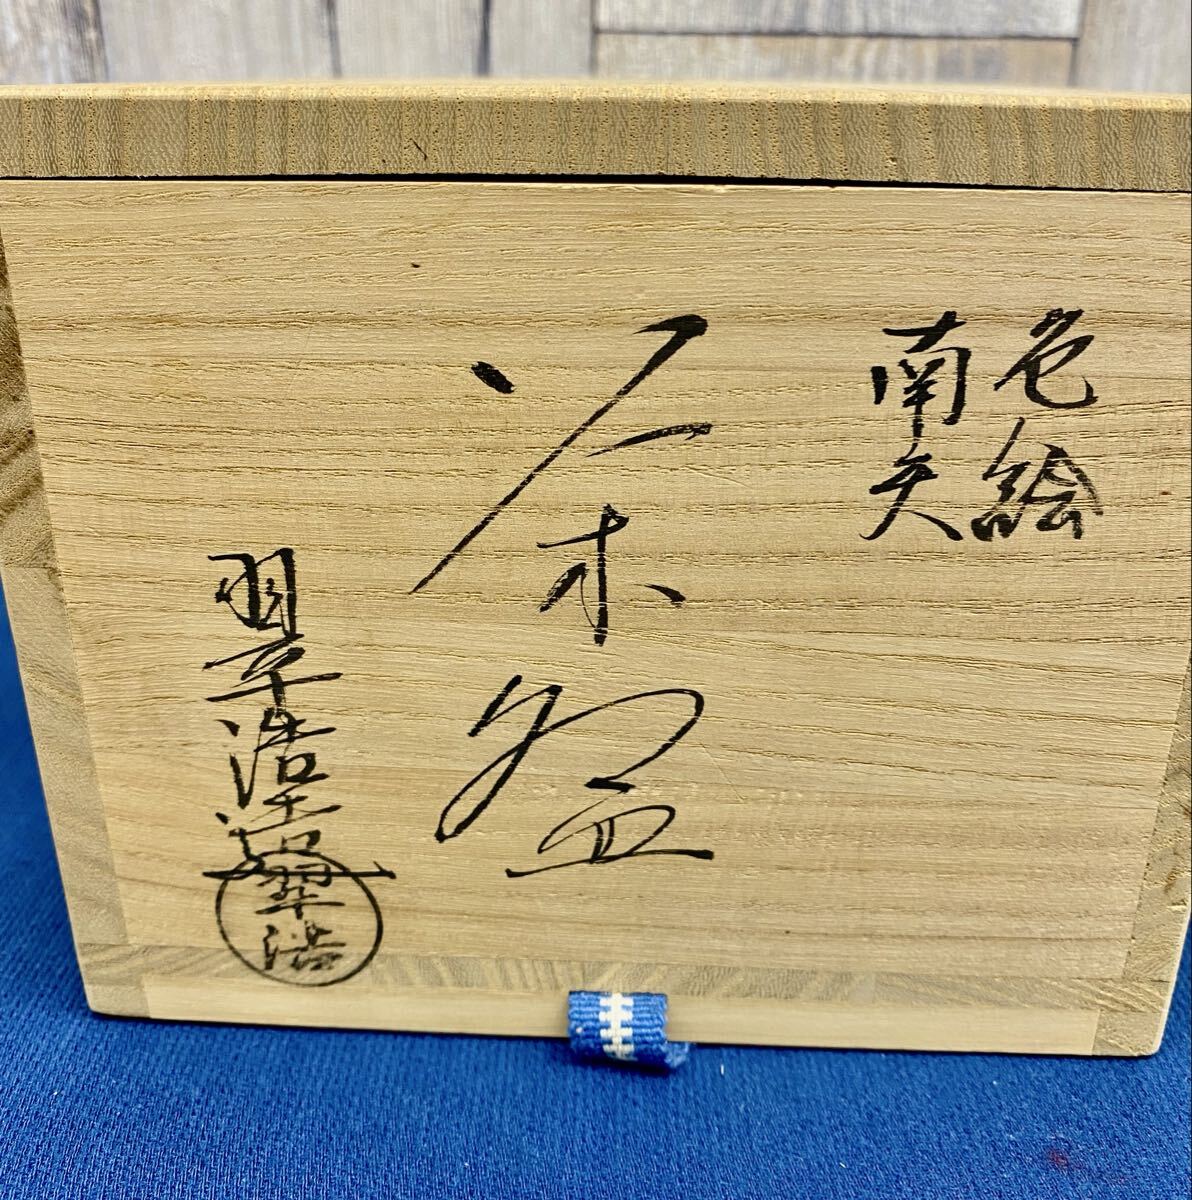 色絵
南天
茶盌
翠浩造
翠浩